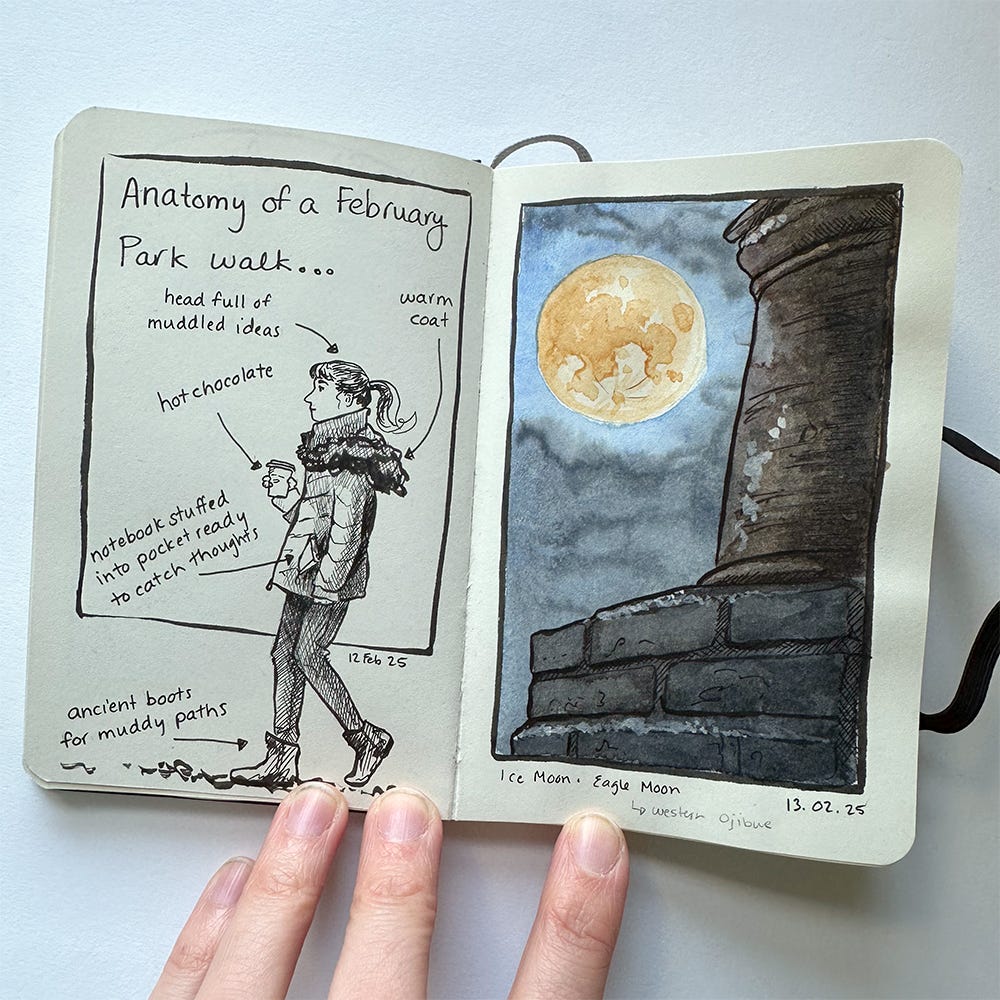 Anatomy of a February
Park walk...
head full of
muddled ideas
warm
coat
hot chocolate
notebook stuffed
into pocket ready
to catch thoughts
12 Feb 25
ancient boots
for muddy paths
Ice Moon · Eagle Moon
↳ western Ojibwe
13.02.25